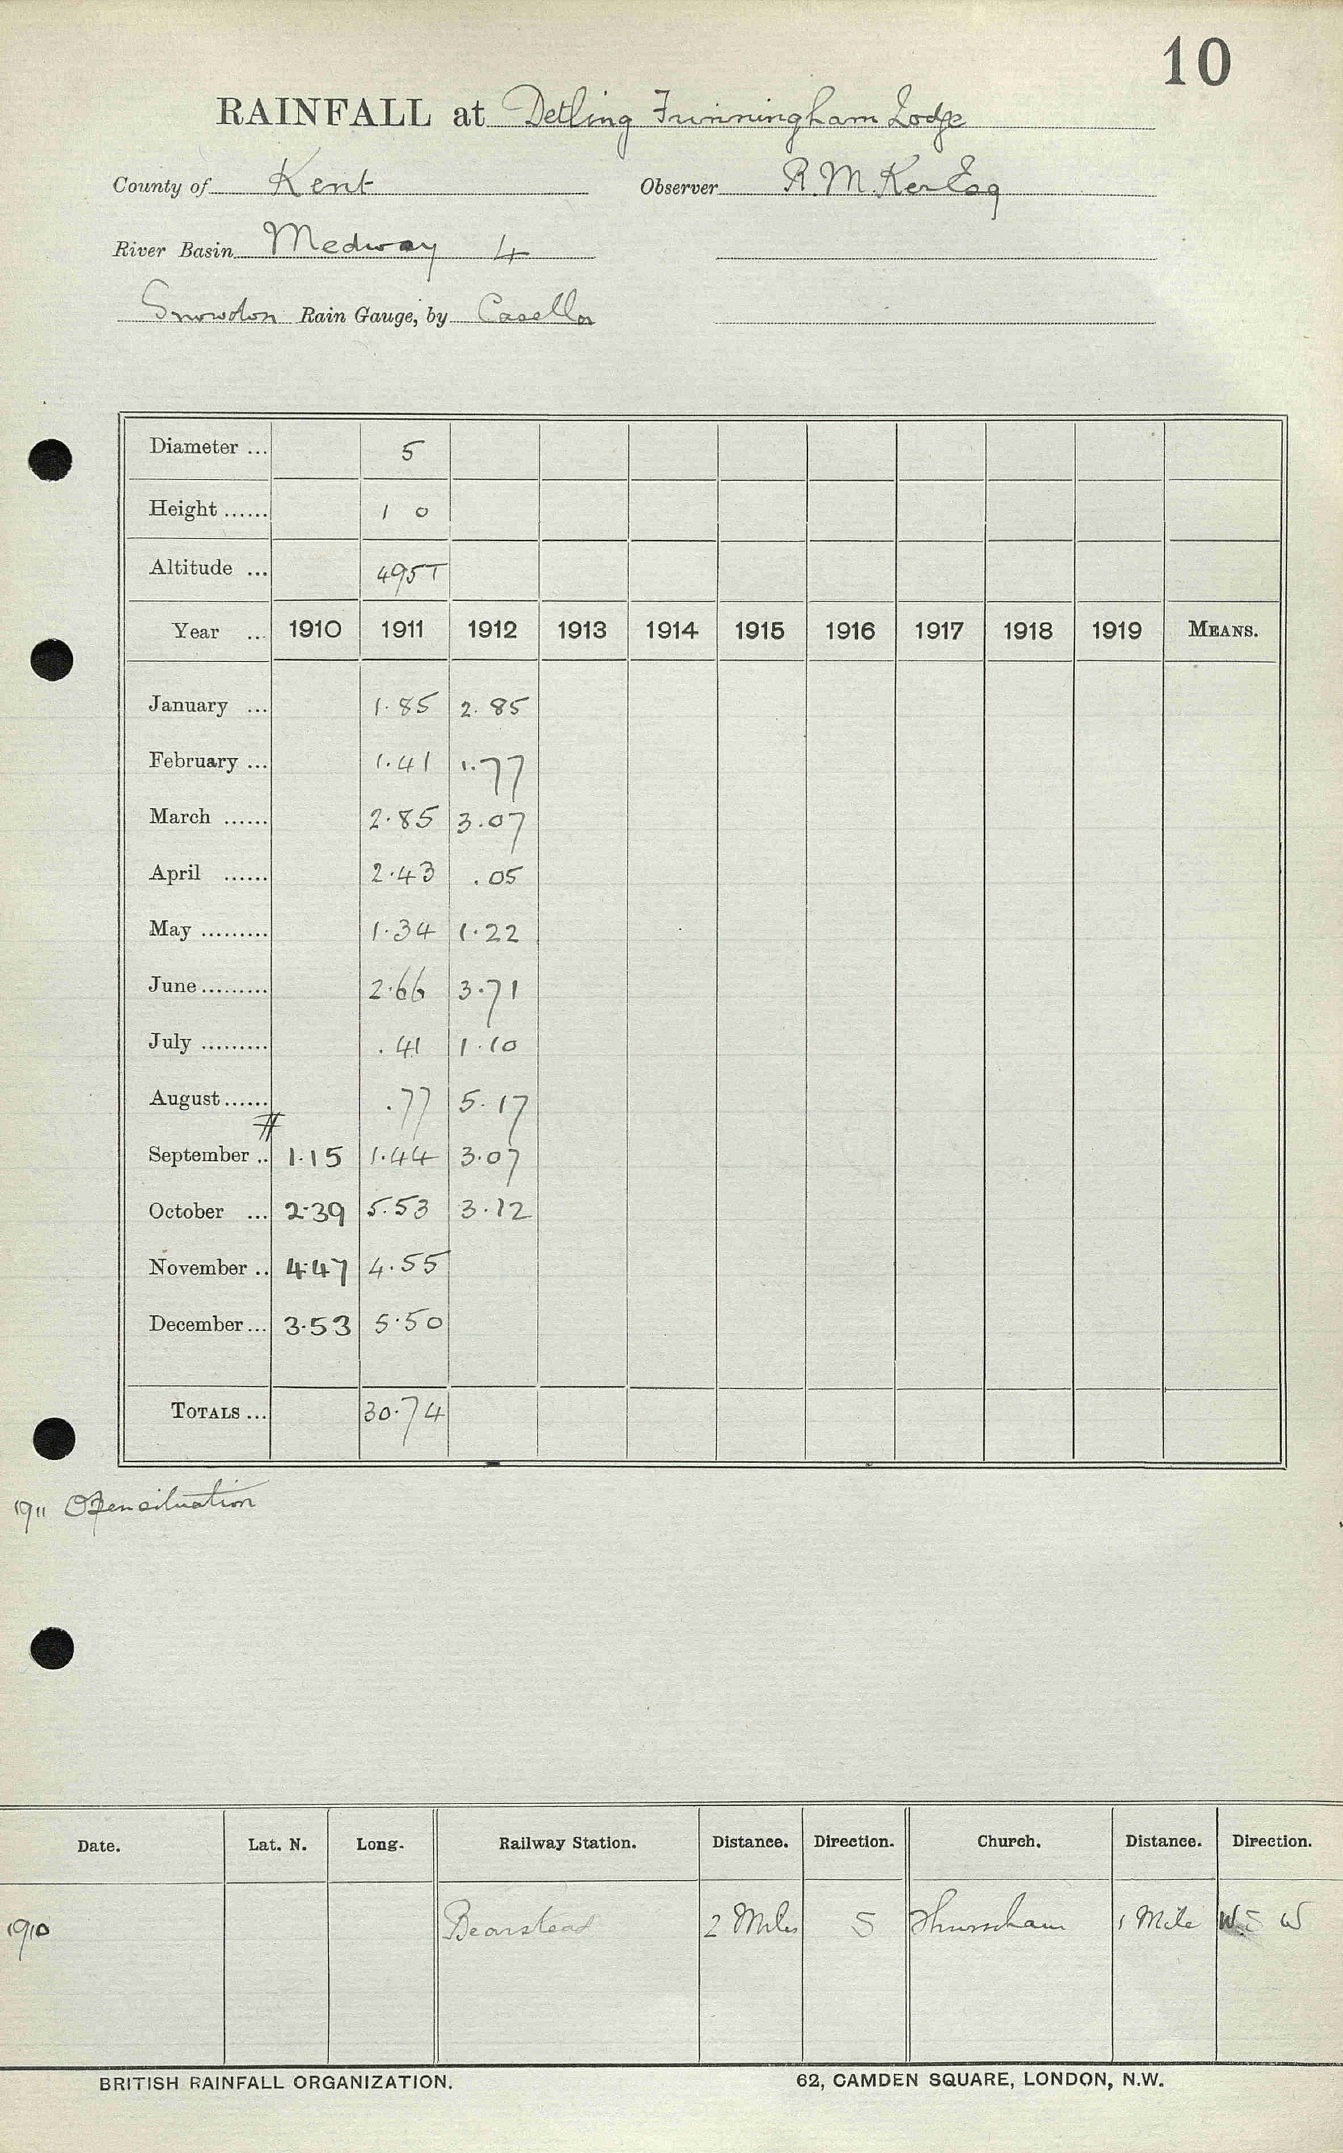 10
RAINFALL at Detling Frinningham Lodge
County of Kent Observer R. M. Ker Esq
River Basin Medway 4
Snowdon Rain Gauge, by Casella
Diameter ... 5
Height ...... 1 0
Altitude ... 495T
Year ... 1910 1911 1912 1913 1914 1915 1916 1917 1918 1919 MEANS.
January ... 1.85 2.85
February ... 1.41 1.77
March ...... 2.85 3.07
April ...... 2.43 .05
May ......... 1.34 1.22
June ......... 2.66 3.71
July ......... .41 1.10
August ...... .77 5.17
September .. 1.15 1.44 3.07
October ... 2.39 5.53 3.12
November .. 4.47 4.55
December ... 3.53 5.50
TOTALS ... 30.74
1911 Open situation
Date. Lat. N. Long. Railway Station. Distance. Direction. Church. Distance. Direction.
1910 Bearstead 2 Miles S Thurnham 1 Mile W S W
BRITISH RAINFALL ORGANIZATION. 62, CAMDEN SQUARE, LONDON, N.W.